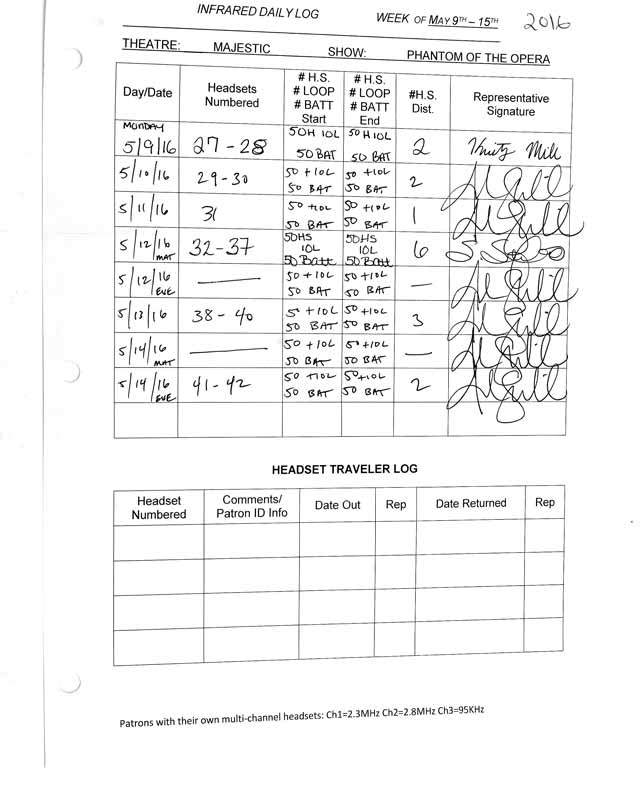 INFRARED DAILY LOG WEEK OF MAY 9TH – 15TH 2016
THEATRE: MAJESTIC SHOW: PHANTOM OF THE OPERA
Day/Date Headsets Numbered # H.S. # LOOP # BATT Start # H.S. # LOOP # BATT End #H.S. Dist. Representative Signature
MONDAY 5/9/16 27 - 28 50H 10L 50 BAT 50 H 10L 50 BAT 2
5/10/16 29-30 50 +10L 50 BAT 50 +10L 50 BAT 2
5/11/16 31 50 +10L 50 BAT 50 +10L 50 BAT 1
5/12/16 MAT 32-37 50HS 10L 50 Batt 50HS 10L 50 BATT 6
5/12/16 EVE — 50 +10L 50 BAT 50 +10L 50 BAT —
5/13/16 38 - 40 50 +10L 50 BAT 50 +10L 50 BAT 3
5/14/16 MAT — 50 +10L 50 BAT 50 +10L 50 BAT —
5/14/16 EVE 41 - 42 50 +10L 50 BAT 50 +10L 50 BAT 2
HEADSET TRAVELER LOG
Headset Numbered Comments/ Patron ID Info Date Out Rep Date Returned Rep
Patrons with their own multi-channel headsets: Ch1=2.3MHz Ch2=2.8MHz Ch3=95KHz